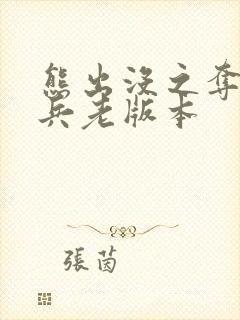 熊出没之夺
兵老版本
張茵